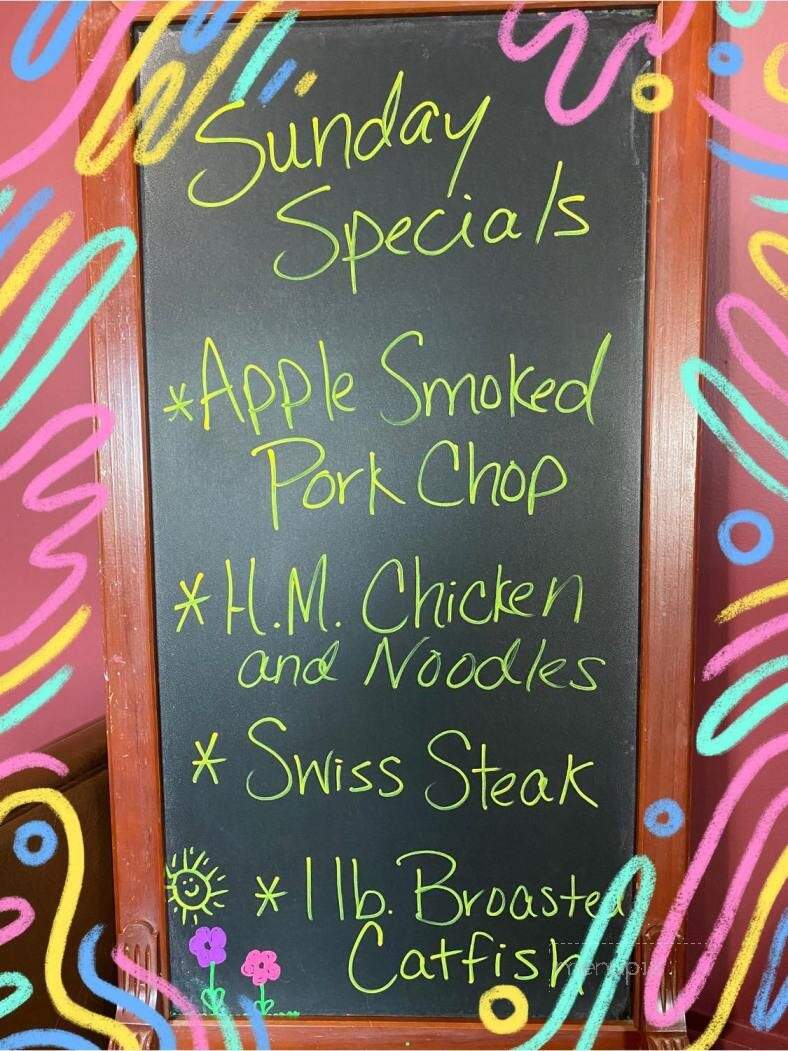 Sunday
Specials
*Apple Smoked
Pork Chop
*H.M. Chicken
and Noodles
* Swiss Steak
* 1 lb. Broasted
Catfish